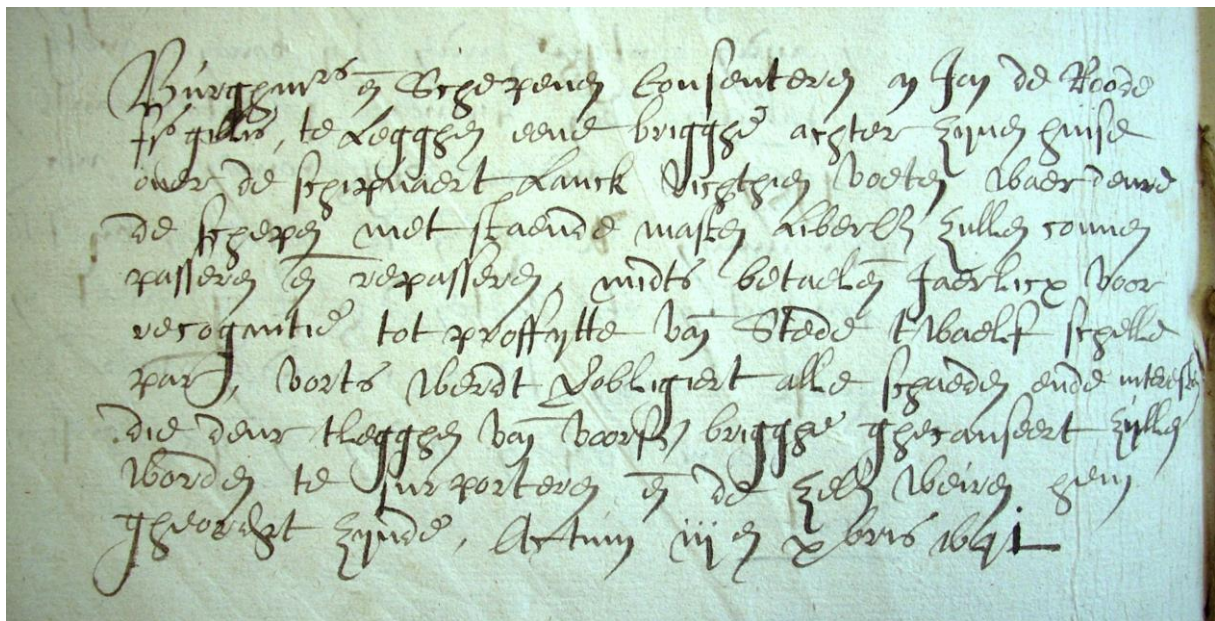 Burghmrs en Schepenen Consenteren an Jan de Roode
fs gillis, te Legghen eene brigghe achter zijnen huise
over de schipvaert Lanck vichthien voeten waer deure
de schepen met staende masten liberlic zullen connen
passeren en repasseren, midts betaelen Jaerlicx voor
recognitie tot proffytte van Stede twaelf schelle
par, vorts werdt gobligiert alle schaeden ende interesten
die deur tlegghen van voors brigghe ghecauseert zullen
worden te supporteren en de zelve weiren hem
gheordt zijnde, Actum iij en xbris